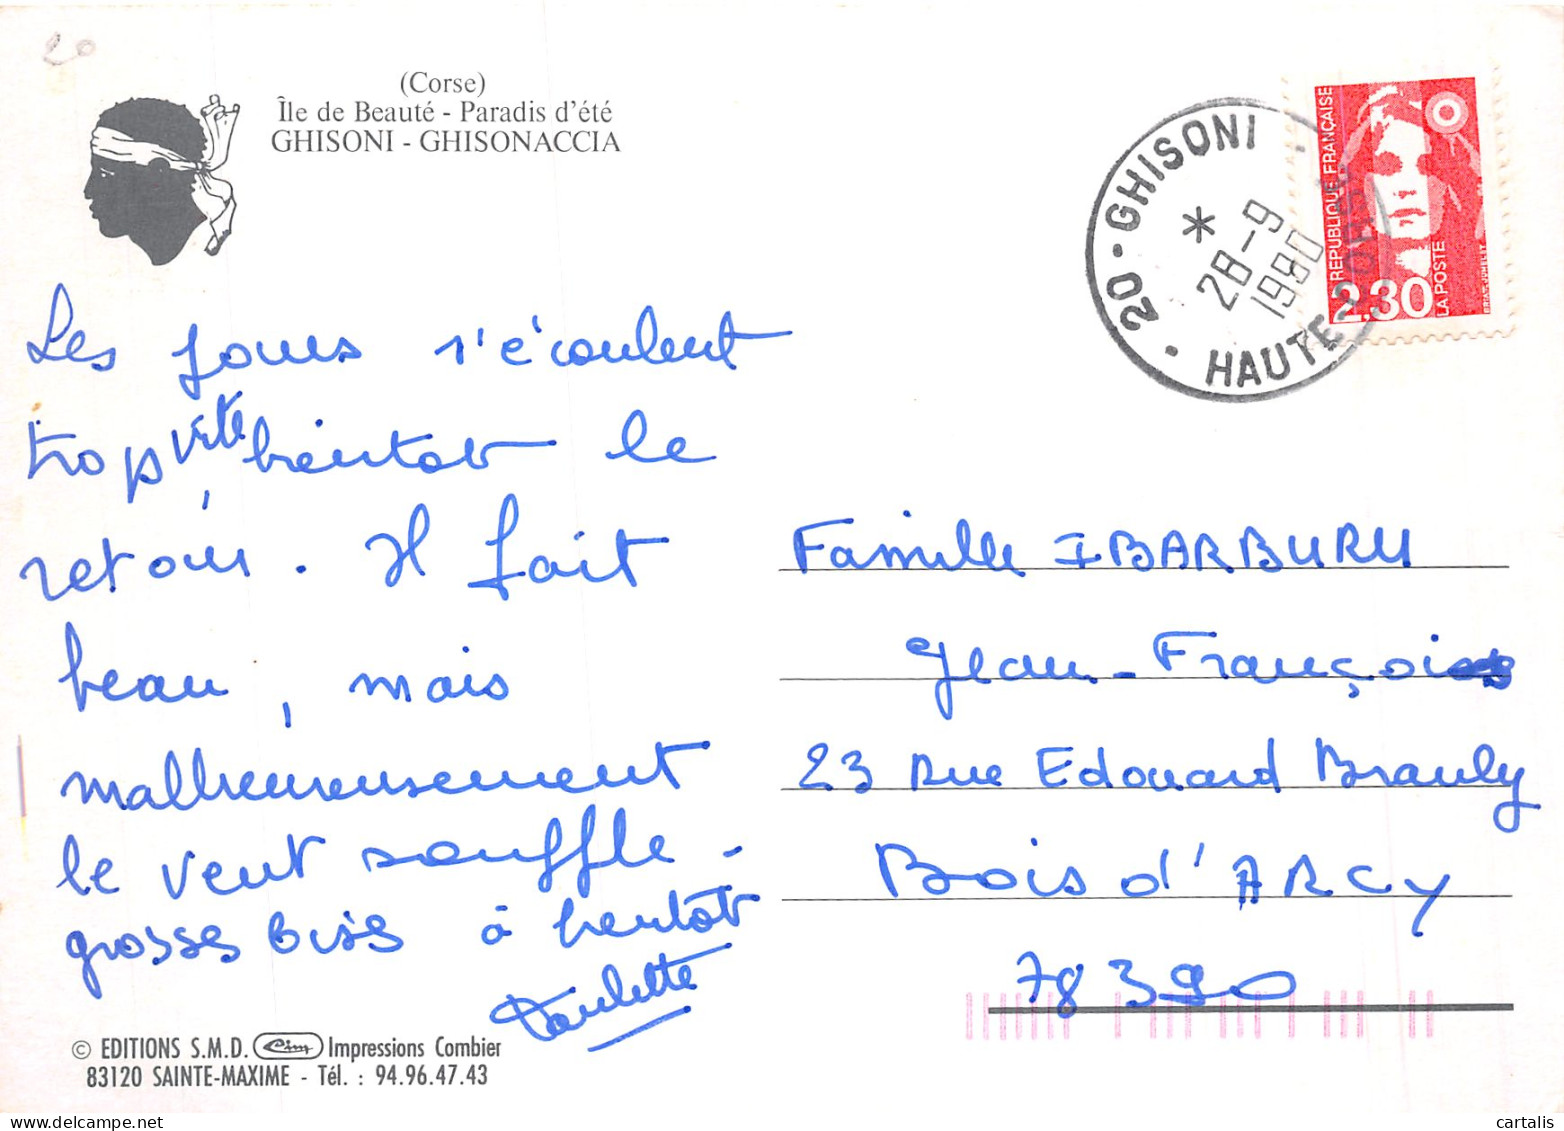 20
(Corse)
Île de Beauté - Paradis d'été
GHISONI - GHISONACCIA
20 · GHISONI
*
28-9
1990
HAUTE-CORSE
REPUBLIQUE FRANÇAISE
2,30
LA POSTE
Les jours s'écoulent
trop vite, bientôt le
retour. Il fait
beau, mais
malheureusement
le vent souffle.
grosses bises à bientôt
Paulette
Famille IBARBURU
Jean-François
23 Rue Edouard Branly
Bois d'ARCY
78390
© EDITIONS S.M.D. Cim Impressions Combier
83120 SAINTE-MAXIME - Tél. : 94.96.47.43
cartalis
delcampe.net